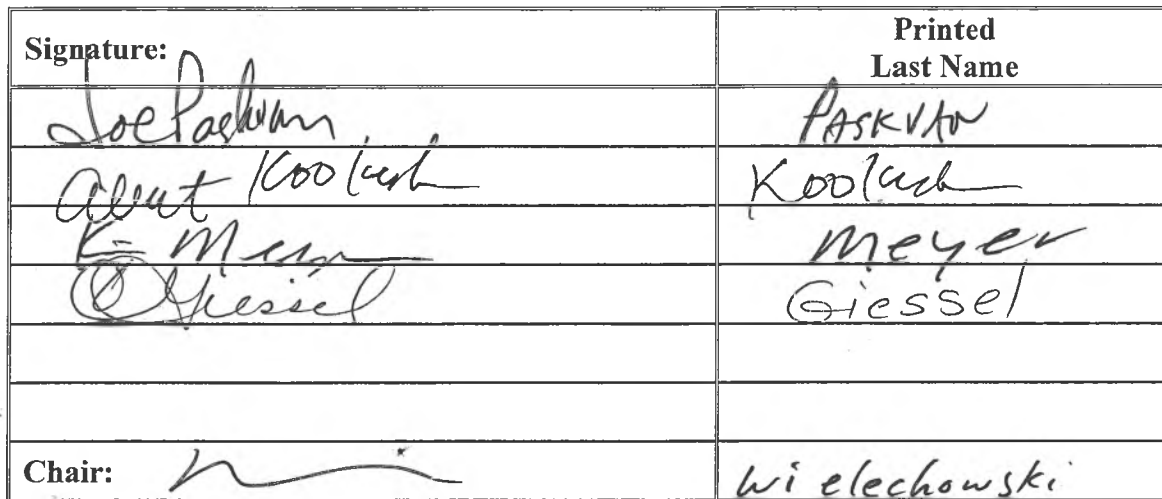 Signature: Printed
Last Name
Joe Paskvan PASKVAN
Albert Kookesh Kookesh
K- Meyer
Giessel Giessel
Chair: Wielechowski